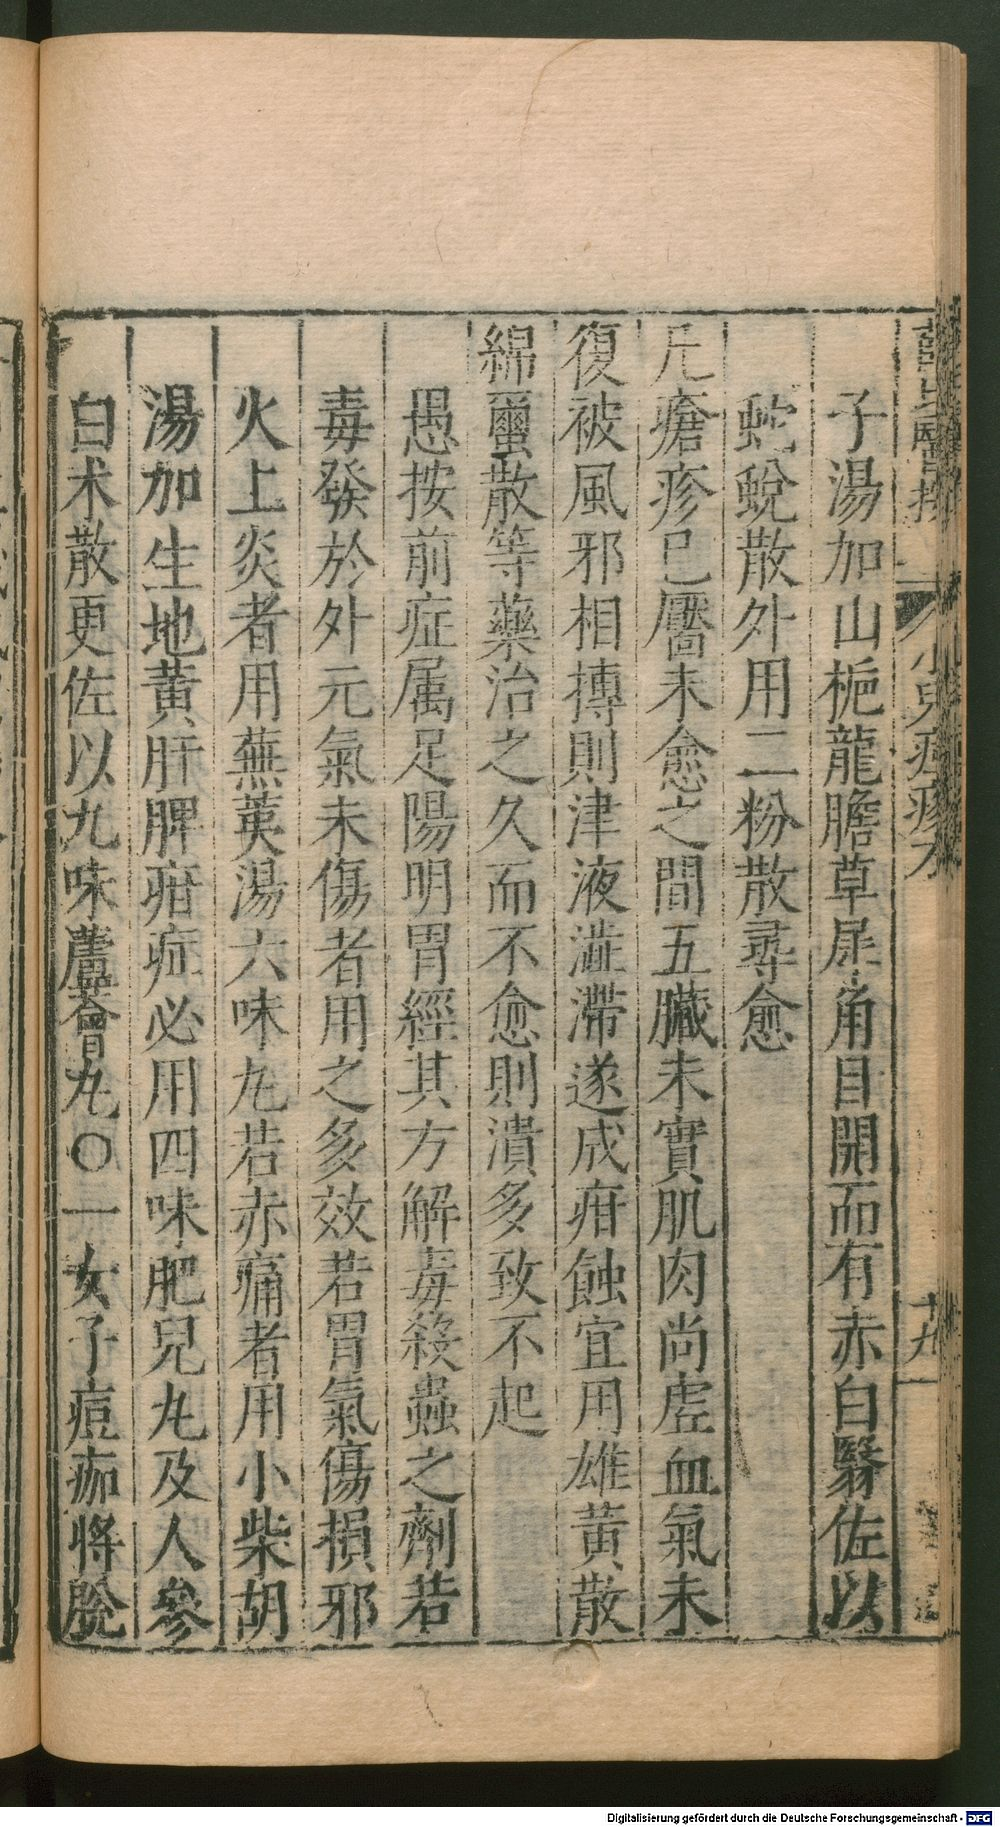 子湯加山梔龍膽草犀角目開而有赤白翳佐以
蛇蛻散外用二粉散尋愈
凡瘡疹已靨未愈之間五臟未實肌肉尚虛血氣未
復被風邪相搏則津液澁滯遂成疳蝕宜用雄黃散
綿蠒散等藥治之久而不愈則潰多致不起
愚按前症属足陽明胃經其方解毒殺蟲之劑若
毒發於外元氣未傷者用之多效若胃氣傷損邪
火上炎者用蕪荑湯六味丸若赤痛者用小柴胡
湯加生地黃肝脾疳症必用四味肥兒丸及人參
白术散更佐以九味蘆薈丸〇一女子痘痂將脫
小兒痘疹方
十九
Digitalisierung gefördert durch die Deutsche Forschungsgemeinschaft - DFG